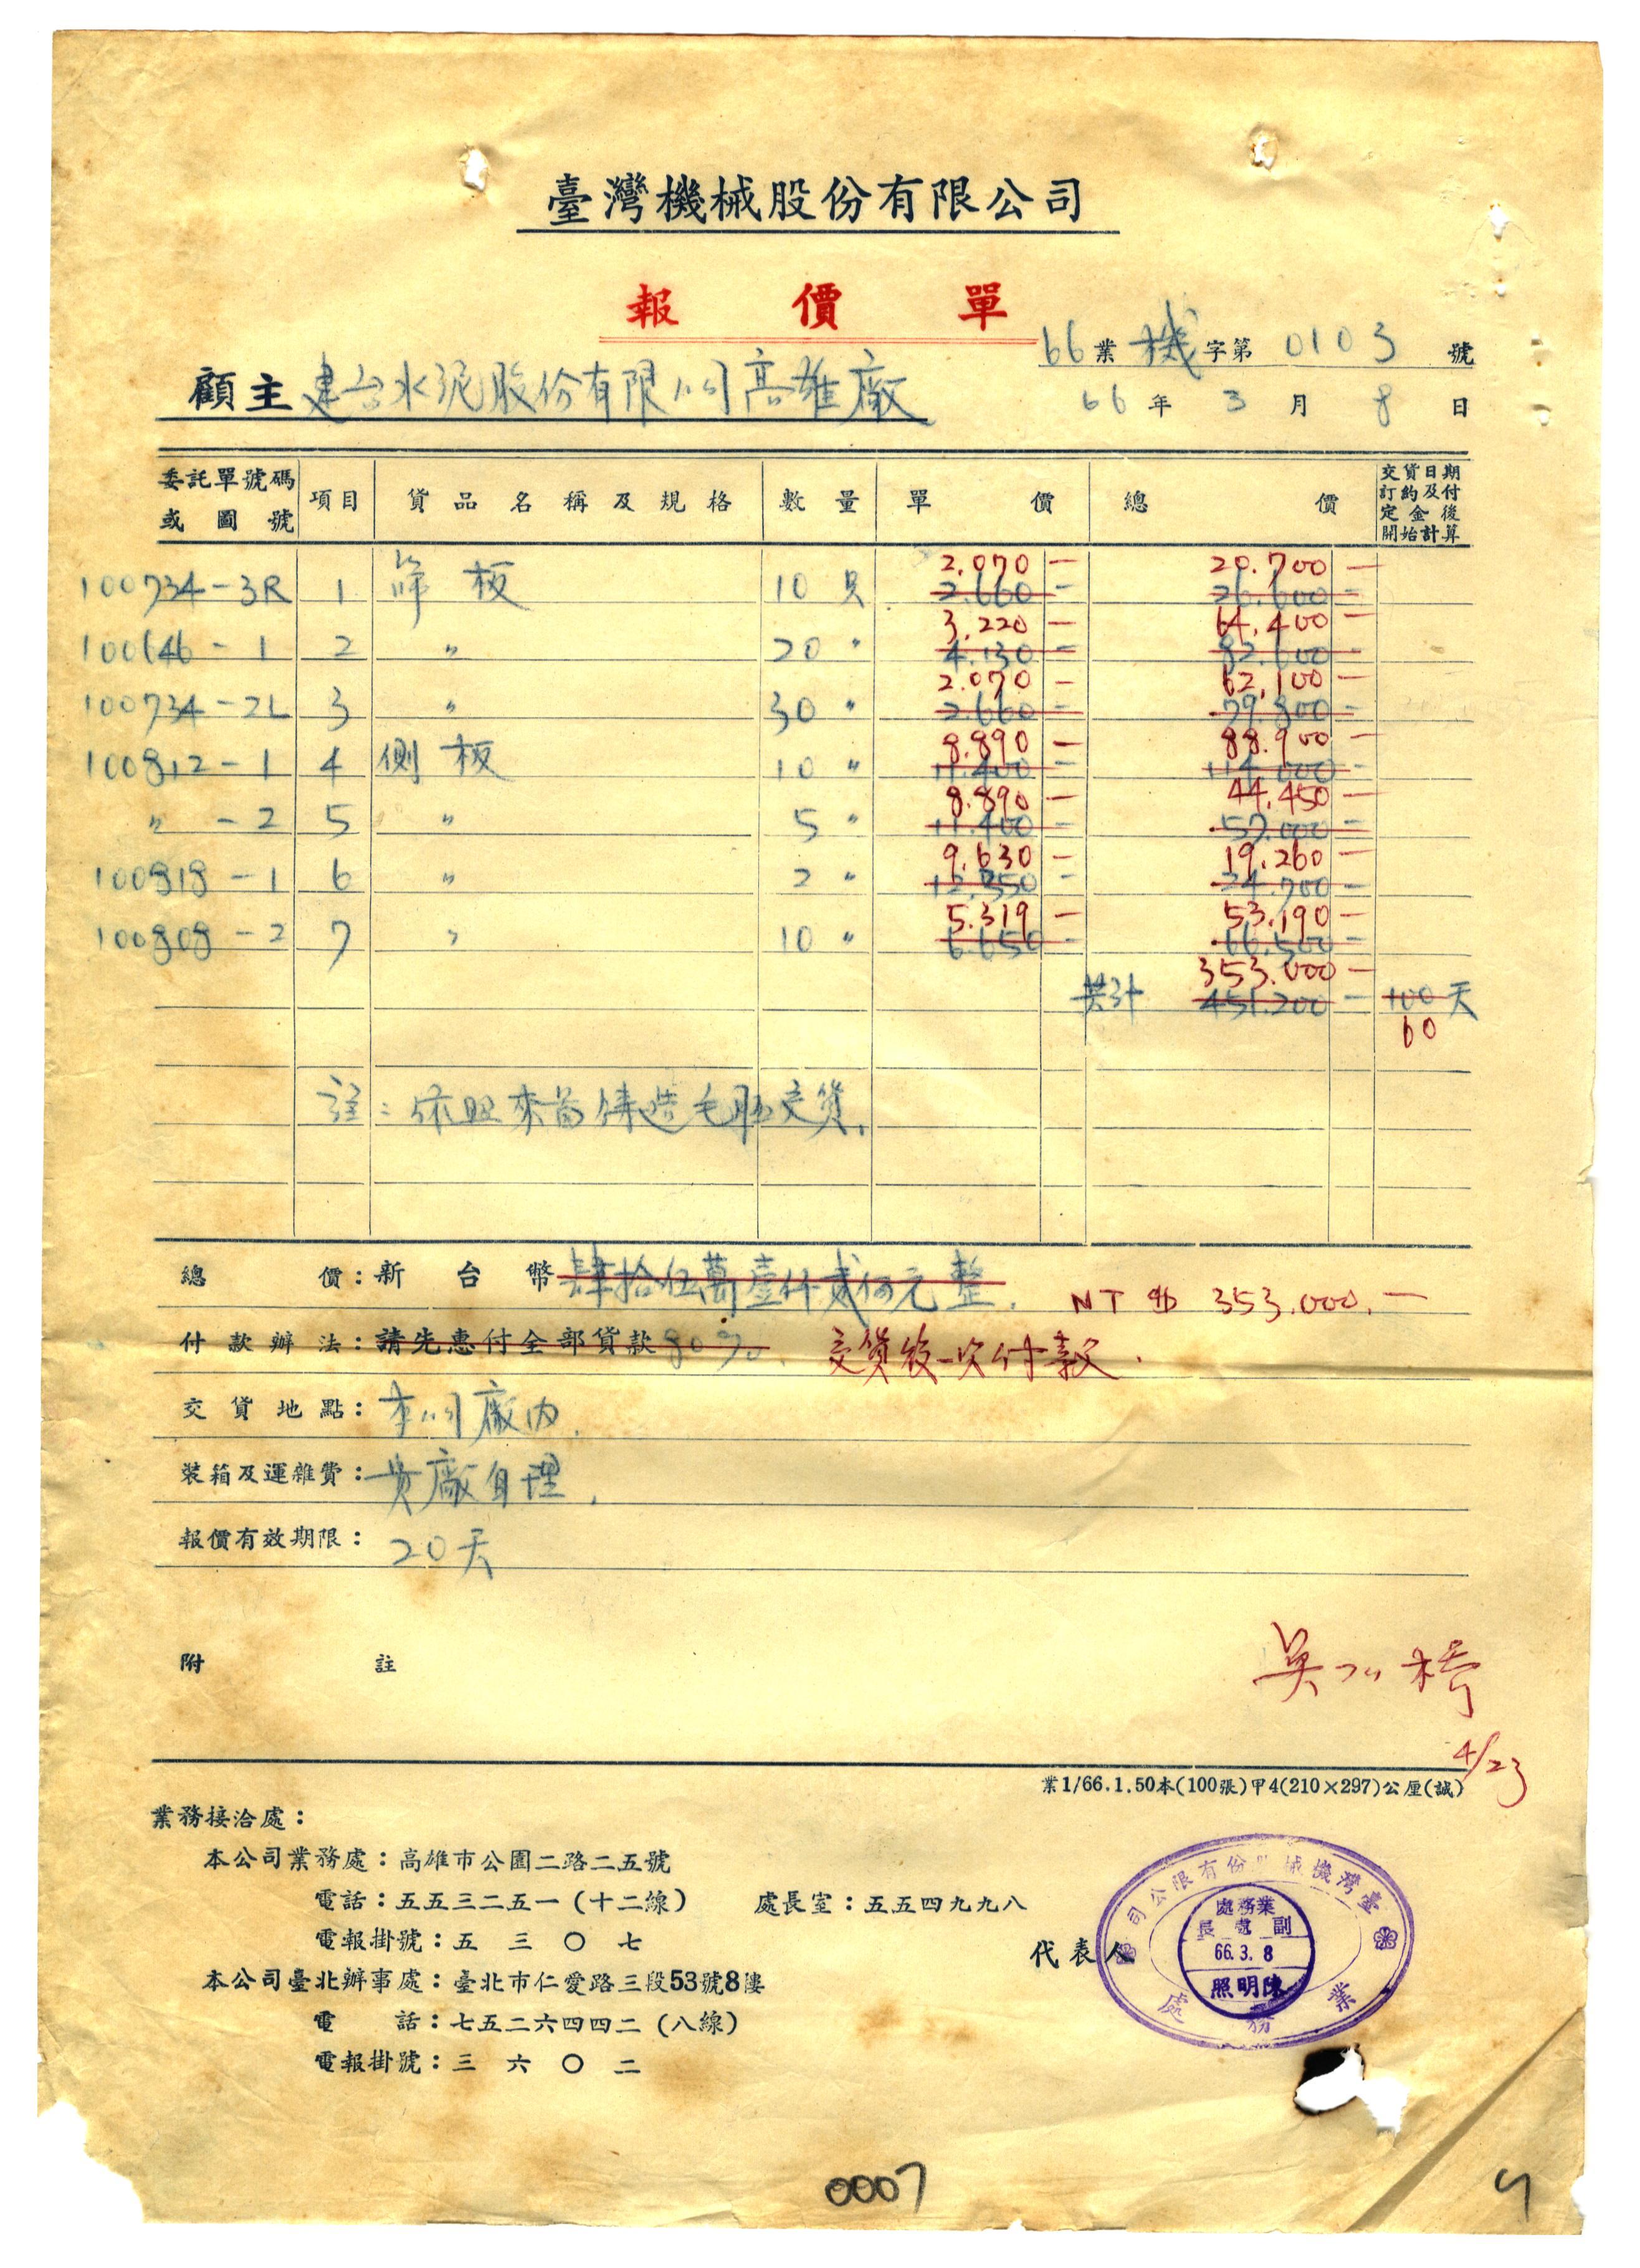 臺灣機械股份有限公司
報價單
66業機字第0103號
顧主 建台水泥股份有限公司高雄廠
66年3月8日
委託單號碼或圖號 項目 貨品名稱及規格 數量 單價 總價 交貨日期訂約及付定金後開始計算
2.070— 20.700—
100734-3R 1 篩板 10只 2.660= 26.600=
3.220— 64.400—
100646-1 2 〃 20〃 4.130= 82.600=
2.070— 62,100—
100734-2L 3 〃 30〃 2.660= 79.800=
8.890— 88.900—
100812-1 4 側板 10〃 11.400= 114.000=
8.890— 44.450—
〃-2 5 〃 5〃 11.400= 57.000=
9.630— 19.260—
100818-1 6 〃 2〃 12.350= 24.700=
5.319— 53.190—
100808-2 7 〃 10〃 6.650= 66.500=
353.000—
共計 451.200— 100天
60
註:依照來圖鑄造毛胚交貨.
總價:新台幣肆拾伍萬壹仟貳佰元整. NT$ 353.000.—
付款辦法:請先惠付全部貨款80%. 交貨後一次付款.
交貨地點:本公司廠內.
裝箱及運雜費:貴廠自理.
報價有效期限:20天
附註
4/23
業1/66.1.50本(100張)甲4(210×297)公厘(誠)
業務接洽處:
本公司業務處:高雄市公園二路二五號
電話:五五三二五一(十二線) 處長室:五五四九九八
電報掛號:五三〇七
代表人
本公司臺北辦事處:臺北市仁愛路三段53號8樓
電話:七五二六四四二(八線)
電報掛號:三六〇二
臺灣機械股份有限公司
業務處
業務處
副處長
66.3.8
陳明照
0007